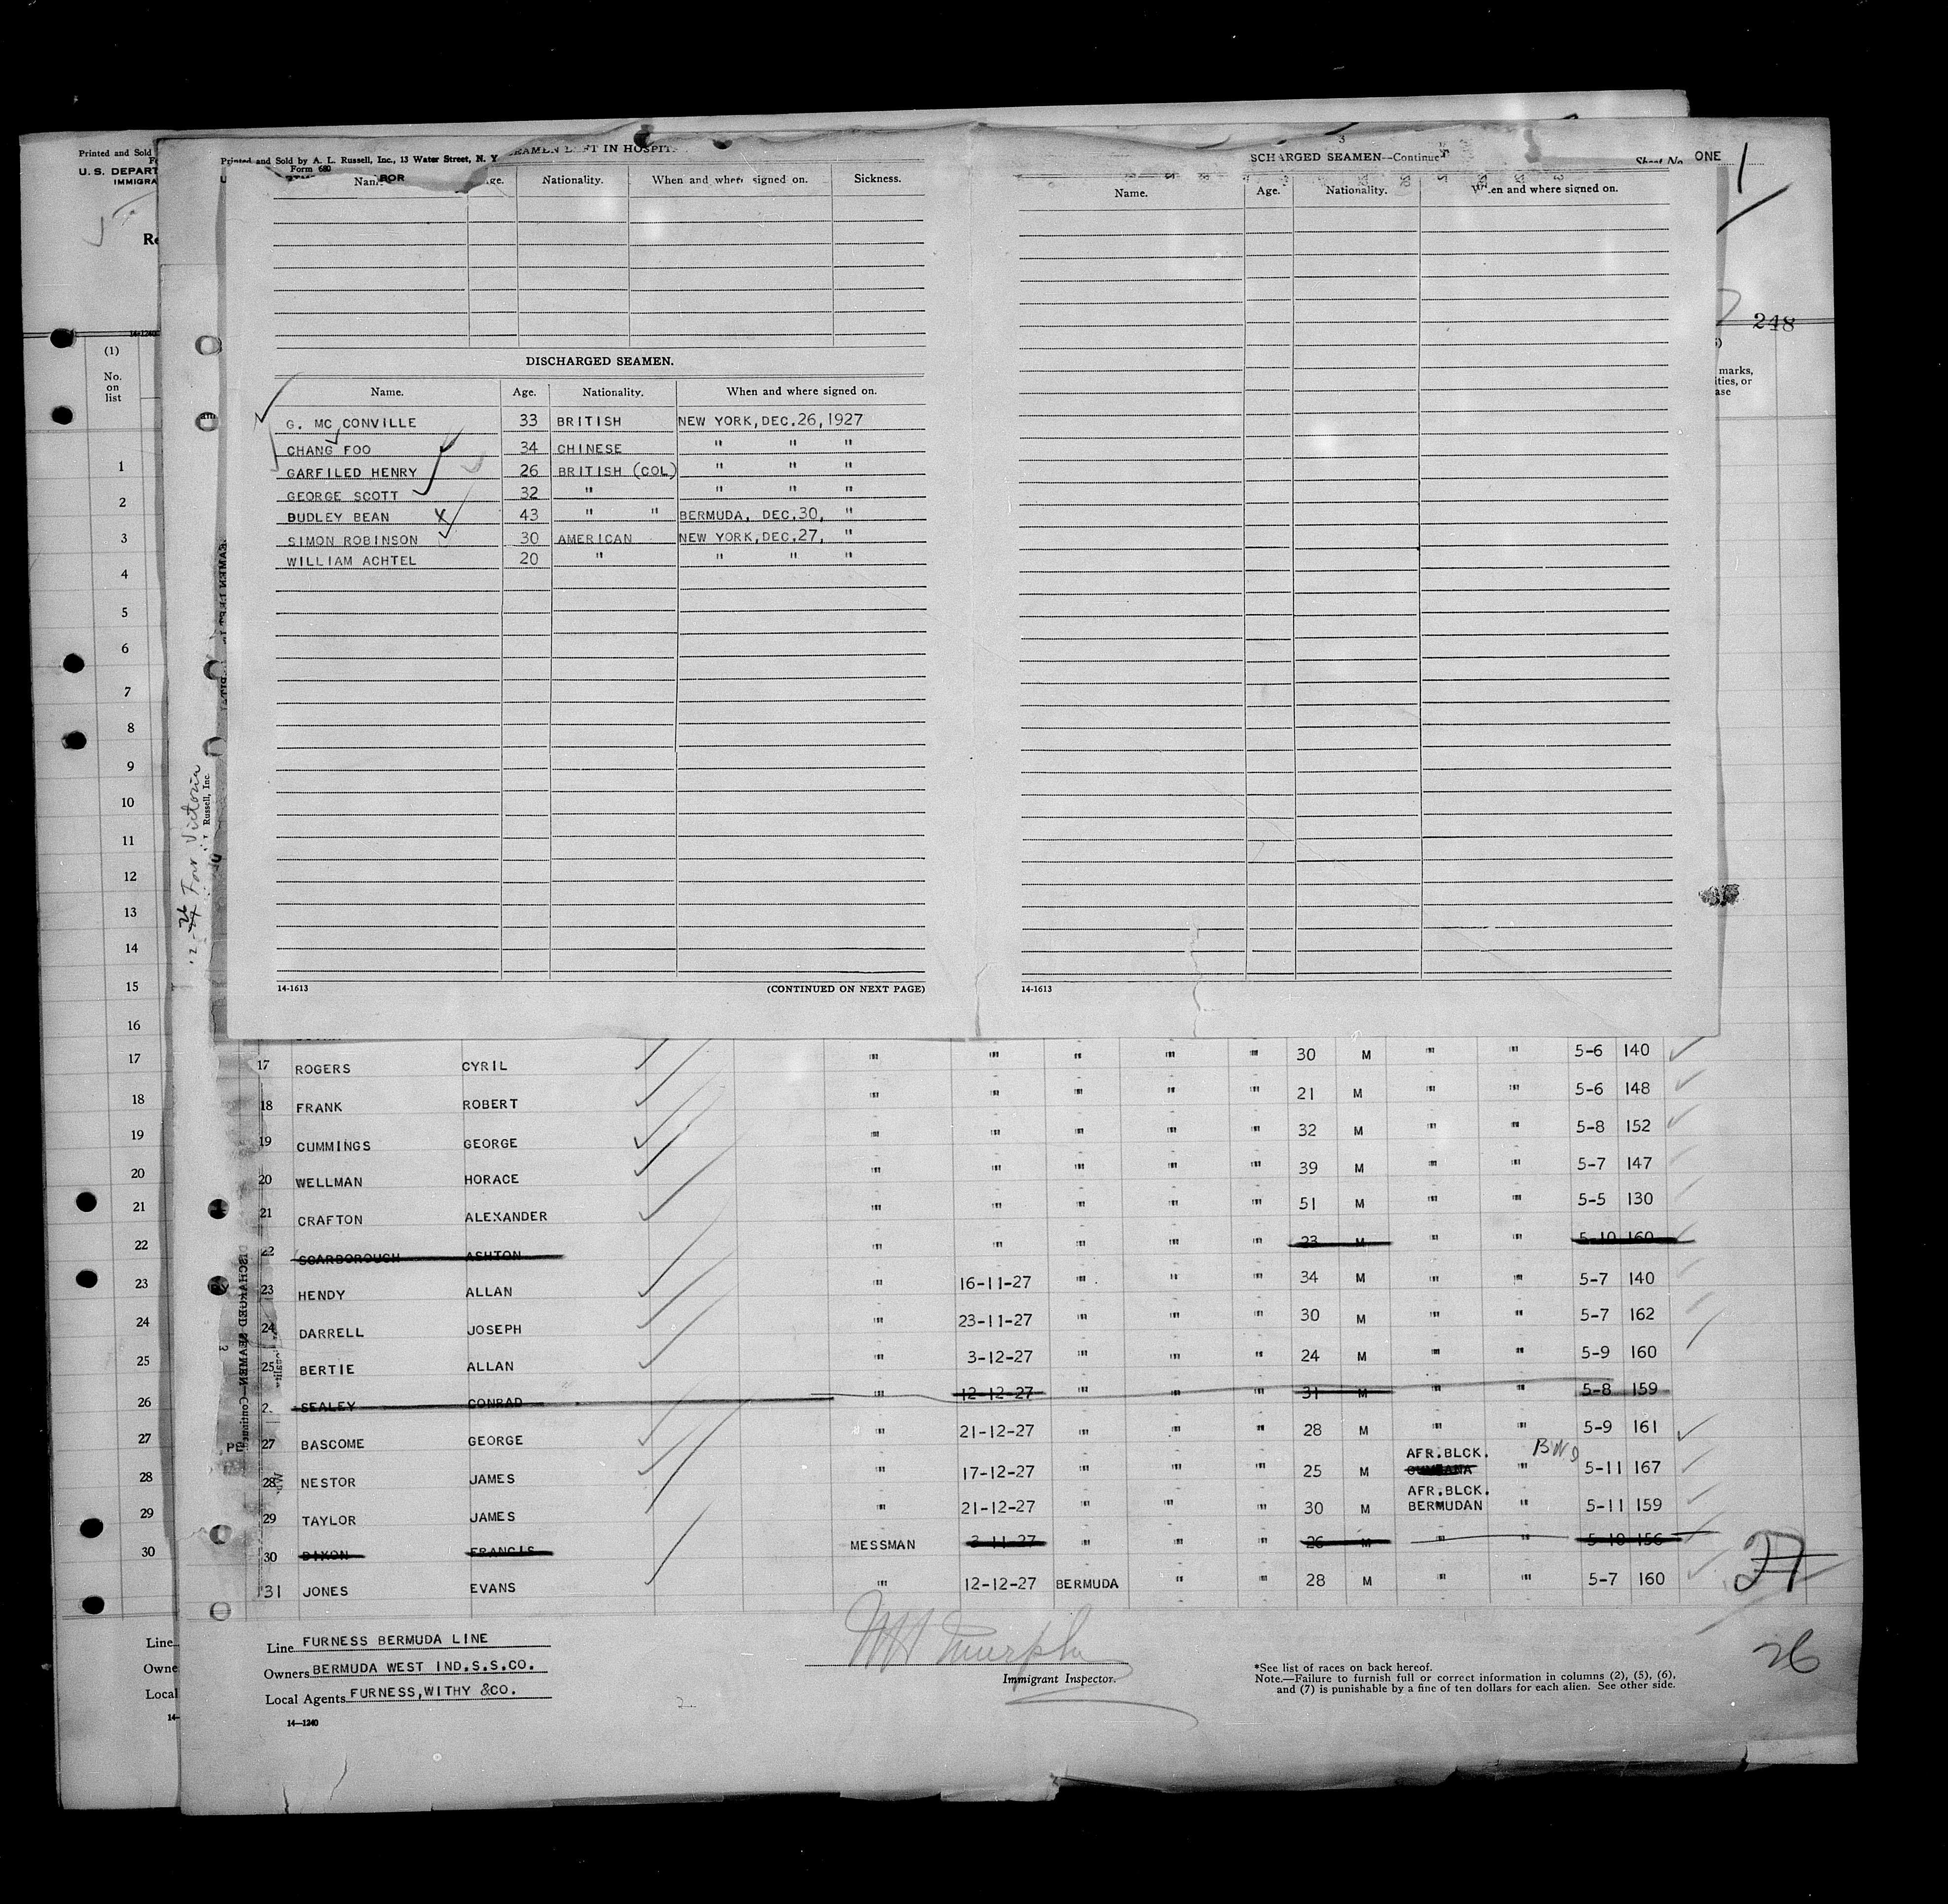 Printed and Sold
U. S. DEPART
IMMIGRA
Re
(1)
No.
on
list
1
2
3
4
5
6
7
8
9
10
11
12
13
14
15
16
17
18
19
20
21
22
23
24
25
26
27
28
29
30
Line
Owne
Local
14-
Printed and Sold by A. L. Russell, Inc., 13 Water Street, N. Y
Form 680
BOR
Name. Age. Nationality. When and where signed on. Sickness.
DISCHARGED SEAMEN.
Name. Age. Nationality. When and where signed on.
G. MC CONVILLE 33 BRITISH NEW YORK,DEC.26,1927
CHANG FOO 34 CHINESE " " "
GARFILED HENRY 26 BRITISH (COL) " " "
GEORGE SCOTT 32 " " " "
BUDLEY BEAN 43 " " BERMUDA, DEC.30, "
SIMON ROBINSON 30 AMERICAN NEW YORK,DEC.27, "
WILLIAM ACHTEL 20 " " " "
14-1613 (CONTINUED ON NEXT PAGE)
3
SCHARGED SEAMEN—Continue
Sheet No. ONE 1
Name. Age. Nationality. When and where signed on.
14-1613
248
marks,
ities, or
ase
For Victoria
Russell, Inc.
DISCHARGED SEAMEN—Continu
17 ROGERS CYRIL " " " " " 30 M " " 5-6 140
18 FRANK ROBERT " " " " " 21 M " " 5-6 148
19 CUMMINGS GEORGE " " " " " 32 M " " 5-8 152
20 WELLMAN HORACE " " " " " 39 M " " 5-7 147
21 CRAFTON ALEXANDER " " " " " 51 M " " 5-5 130
22 SCARBOROUGH ASHTON " " " " " 23 M " " 5-10 160
23 HENDY ALLAN " 16-11-27 " " " 34 M " " 5-7 140
24 DARRELL JOSEPH " 23-11-27 " " " 30 M " " 5-7 162
25 BERTIE ALLAN " 3-12-27 " " " 24 M " " 5-9 160
2 SEALEY CONRAD " 12-12-27 " " " 31 M " " 5-8 159
27 BASCOME GEORGE " 21-12-27 " " " 28 M " " 5-9 161
AFR.BLCK. BWI
28 NESTOR JAMES " 17-12-27 " " " 25 M " 5-11 167
AFR.BLCK.
29 TAYLOR JAMES " 21-12-27 " " " 30 M BERMUDAN " 5-11 159
30 DIXON FRANCIS MESSMAN 3-11-27 " " " 26 M " " 5-10 156
31 JONES EVANS " 12-12-27 BERMUDA " " 28 M " " 5-7 160
27
26
Line FURNESS BERMUDA LINE
Owners BERMUDA WEST IND.S.S.CO.
Local Agents FURNESS,WITHY &CO.
14—1240
Immigrant Inspector.
*See list of races on back hereof.
Note.—Failure to furnish full or correct information in columns (2), (5), (6),
and (7) is punishable by a fine of ten dollars for each alien. See other side.